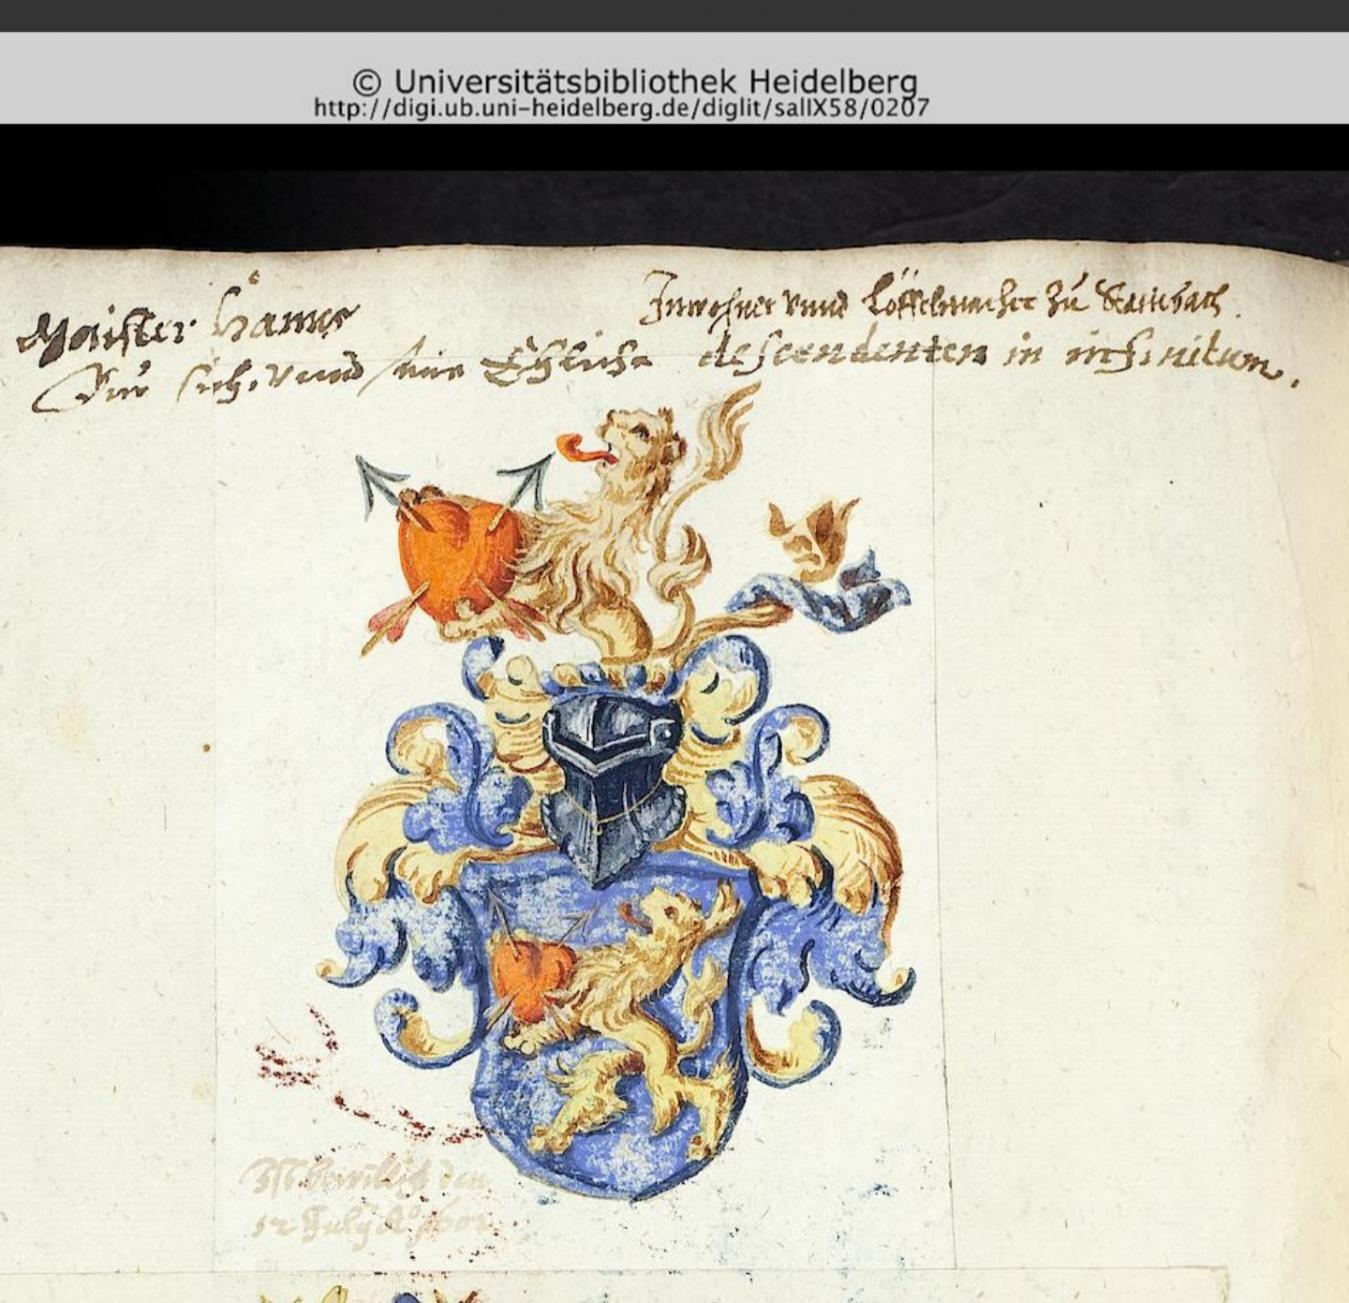 © Universitätsbibliothek Heidelberg
http://digi.ub.uni-heidelberg.de/diglit/salIX58/0207
Maister Hanns
Inwohner vnnd Löfflmacher zu
Für sich, vnnd seine Ehliche descendenten in infinitum.
Ist bewilligt den
12 July Aº